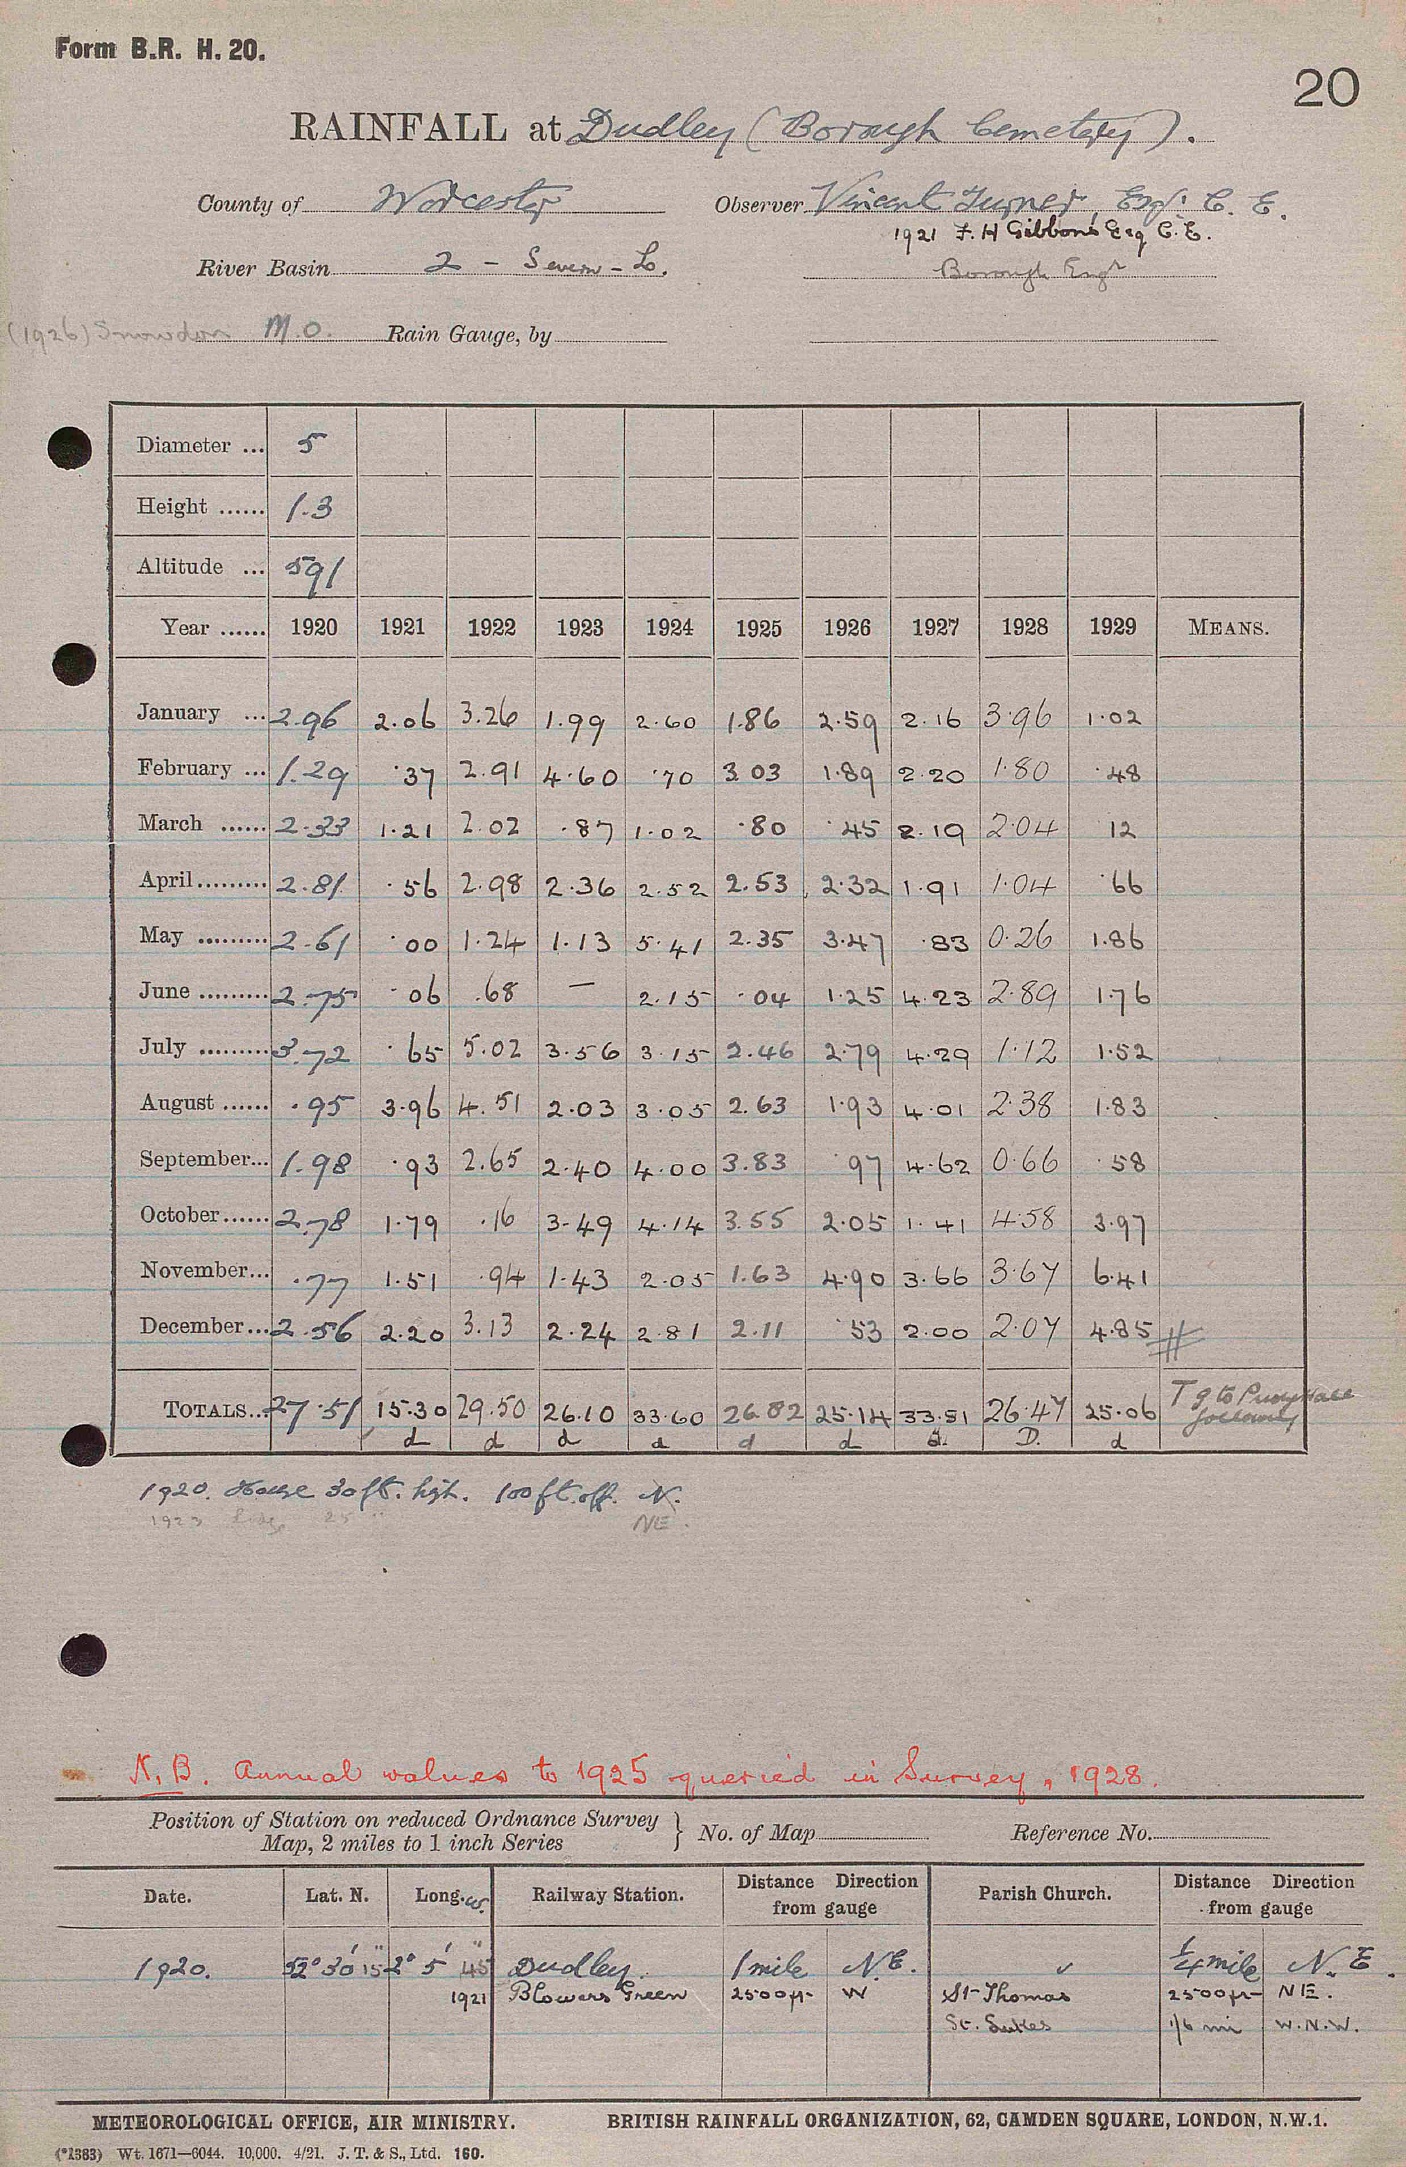 Form B.R. H. 20.
20
RAINFALL at Dudley (Borough Cemetery).
County of Worcester Observer Vincent Turner, Esq. C. E.
1921 F. H Gibbons Esq C. E.
River Basin 2 - Severn - L. Borough Engr
(1926) Snowdon M.O. Rain Gauge, by
Diameter ... 5
Height ...... 1.3
Altitude ... 591
Year ...... 1920 1921 1922 1923 1924 1925 1926 1927 1928 1929 MEANS.
January ... 2.96 2.06 3.26 1.99 2.60 1.86 2.59 2.16 3.96 1.02
February ... 1.29 .37 2.91 4.60 .70 3 03 1.89 2.20 1.80 .48
March ...... 2.33 1.21 2.02 .87 1.02 .80 .45 2.19 2.04 12
April ......... 2.81 .56 2.98 2.36 2.52 2.53 2.32 1.91 1.04 .66
May ......... 2.61 .00 1.24 1.13 5.41 2.35 3.47 .83 0.26 1.86
June ......... 2.75 .06 .68 — 2.15 .04 1.25 4.23 2.89 1.76
July ......... 3.72 .65 5.02 3.56 3.15 2.46 2.79 4.29 1.12 1.52
August ...... .95 3.96 4.51 2.03 3.05 2.63 1.93 4.01 2.38 1.83
September... 1.98 .93 2.65 2.40 4.00 3.83 .97 4.62 0.66 .58
October...... 2.78 1.79 .16 3.49 4.14 3.55 2.05 1.41 4.58 3.97
November... .77 1.51 .94 1.43 2.05 1.63 4.90 3.66 3.67 6.41
December... 2.56 2.20 3.13 2.24 2.81 2.11 .53 2.00 2.07 4.85
TOTALS... 27.51 15.30 29.50 26.10 33.60 26.82 25.14 33.51 26.47 25.06 T g to
following
d d d d d d d. D. d
1920. House 30 ft. high. 100 ft. off. N.
1923 25 " NE.
N.B. Annual values to 1925 queried in Survey, 1928.
Position of Station on reduced Ordnance Survey
Map, 2 miles to 1 inch Series } No. of Map Reference No.
Date. Lat. N. Long. W. Railway Station. Distance Direction from gauge Parish Church. Distance Direction from gauge
1920. 52° 30' 15" 2° 5' 45" Dudley. 1 mile N.E. ✓ 1/4 mile N. E.
1921 Blowers Green 2500 ft W St Thomas 2500 ft NE.
St. Lukes 1/6 mi W.N.W.
METEOROLOGICAL OFFICE, AIR MINISTRY. BRITISH RAINFALL ORGANIZATION, 62, CAMDEN SQUARE, LONDON, N.W.1.
(*1383) Wt. 1671—6044. 10,000. 4/21. J. T. & S., Ltd. 160.